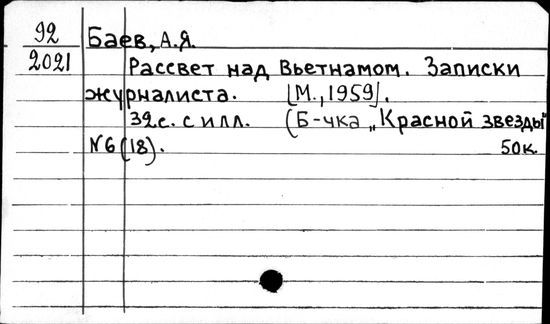 92
2021
Баев, А.Я.
Рассвет над Вьетнамом. Записки
журналиста. [М., 1959].
32с. с илл. (Б-чка „Красной звезды"
№6(18). 50к.